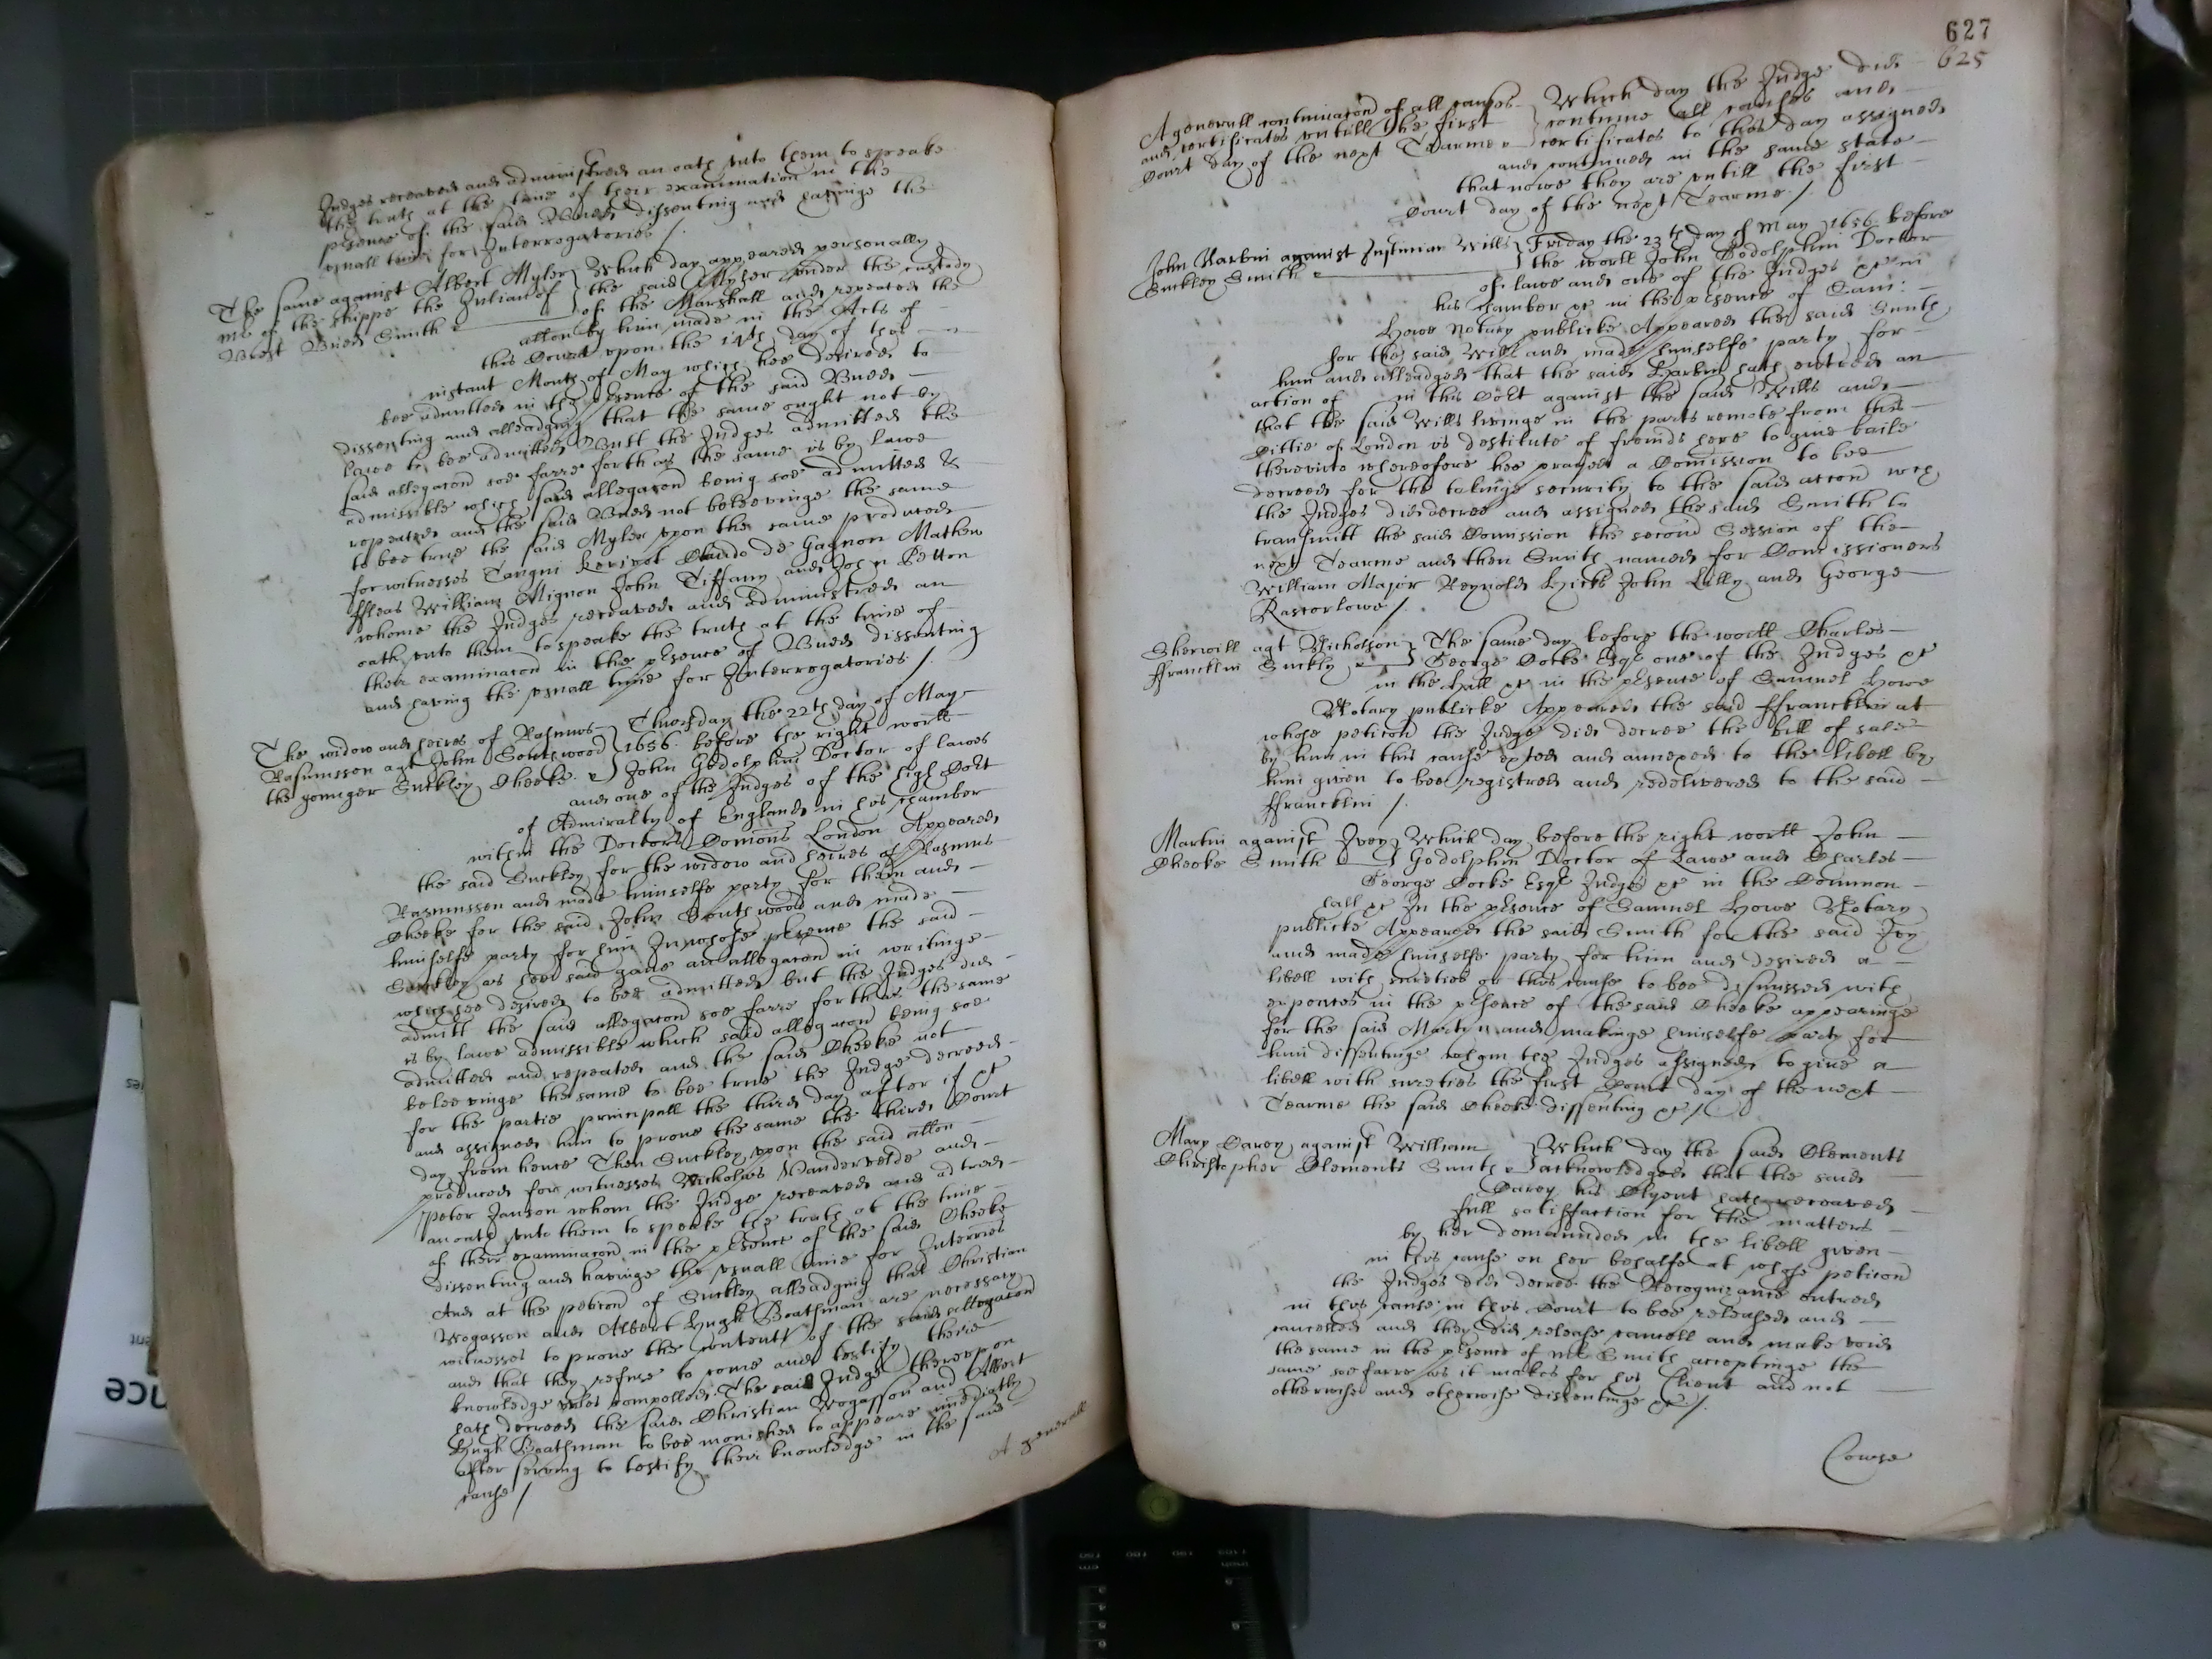 Judges received and administred an oath unto them to speake
the truth at the time of their examination in the
psence of the said Bueds dissenting and haveinge the
usuall time for Interrogatories /.
The same against Albert Myler
mr of the shippe the Julian of
Brest Bueds Smith
Which day appeared personally
the said Myler under the custody
of the Marshall and repeated the
allon by him made in the Acts of
this Court upon the 14th day of this
instant Month of May which hee desired to
bee admitted in the psence of the said Bueds
dissenting and alleadging that the same ought not by
lawe to bee admitted But the Judges admitted the
said allegacon soe farre forth as the same is by lawe
admissible which said allegacon being soe admitted &
repeated and the said Bueds not beleevinge the same
to bee true the said Myler upon the same produced
for witnesses Tangui Kerirot Claude de Gagnon Mathew
ffleas William Mignon John Tiffany and John Petton
whome the Judges received and administred an
oath unto them to speake the truth at the time of
their examinacon in the psence of Bueds dissenting
and having the usuall time for Interrogatories /.
The widow and heires of Rasmus
Rasmusson agt John Southwood
the younger Suckley Cheeke
Thursday the 22th day of May
1656. before the right worll
John Godolphin Doctor of lawes
and one of the Judges of the high Cort
of Admiralty of England in his chamber
within the Doctors Comons London Appeared
the said Suckley for the widow and heires of Rasmus
Rasmusson and made himselfe party for them and
Cheeke for the said John Southwood and made
himselfe party for him In whose psence the said
Suckley as hee said gave an allegacon in writinge
which hee desired to bee admitted but the Judges did
admitt the said allegacon soe farre forth as the same
is by lawe admissible which said allegacon being soe
admitted and repeated and the said Cheeke not
beleevinge the same to bee true the Judge decreed
for the partie principall the third day after if &c
and assigned him to prove the same the third Court
day from hence Then Suckley upon the said allon
produced for witnesses Nicholas Vandervelde and
Peter Janson whom the Judge received and adtred
an oath unto them to speake the truth at the time
of their examinacon in the psence of the said Cheeke
dissenting and haveinge the usuall time for Interries
And at the peticon of Suckley alleadging that Christian
Wogasson and Albert Hugh Boathman are necessary
witnesses to prove the contentts of the said allegacon
and that they refuse to come and testify theire
knowledge unles compelled The said Judge thereupon
hath decreed the said Christian Wogasson and Albert
Hugh Boathman to bee monished to appeare imediatly
after serving to testify their knowledge in the said
cause /
A generall
627
625
A generall continuacon of all causes
and certificates untill the first
Court day of the next Tearme
Which day the Judge did
continue all causes and
certificates to this day assigned
and continued in the same state
that nowe they are untill the first
Court day of the next Tearme /.
John Harbin against Justinian Wills
Suckley Smith
Friday the 23th day of May 1656 before
the worll John Godolphin Doctor
of lawe and one of the Judges &c in
his chamber &c in the psence of Sam:
Howe Notary publicke Appeared the said Smith
for the said Wills and made himselfe party for
him and alleadged that the said Harbin hath entred an
action of in this Cort against the said Wills and
that the said Wills liveinge in the parts remote from this
Cittie of London is destitute of freinds here to give baile
thereunto wherefore hee prayed a Comission to bee
decreed for the takinge security to the said accon wch
the Judges did decree and assigned the said Smith to
transmitt the said Comission the second Session of the
next Tearme and then Smith named for Comissioners
William Major Reynolds Hicks John Lilly and George
Rastorlowe /.
Sherwill agt Nicholson
ffrancklin Suckly
The same day before the worll Charles
George Cocke Esqr one of the Judges &c
in the Hall &c in the psence of Samuel Howe
Notary publicke Appeared the said ffrancklin at
whose peticon the Judge did decree the bill of sale
by him in this cause exted and annexed to the libell by
him given to bee registred and redelivered to the said
ffrancklin /.
Martin against Ivoy
Cheeke Smith
Which day before the right worll John
Godolphin Doctor of Lawe and Charles
George Cocke Esqr Judges &c in the Common
hall &c In the psence of Samuel Howe Notary
publicke Appeared the said Smith for the said Ivoy
and made himselfe party for him and desired a
libell with sureties or this cause to bee dismissed with
expences in the psence of the said Cheeke appearinge
for the said Martyn and makinge himselfe party for
him dissentinge whom the Judges assigned to give a
libell with sureties the first Court day of the next
Tearme the said Cheeke dissenting &c /.
Mary Carey against William
Christopher Clements Smith
Which day the said Clements
acknowledged that the said
Carey his Clyent hath received
full satisffaction for the matters
by her demannded in the libell given
in this cause on her behalfe at whose peticon
the Judges did decree the Recognizance entred
in this cause in this Court to bee released and
cancelled and they did release cancell and make void
the same in the psence of Mr Smith acceptinge the
same soe farre as it makes for his Client and not
otherwise and otherwise dissentinge &c /.
Cause